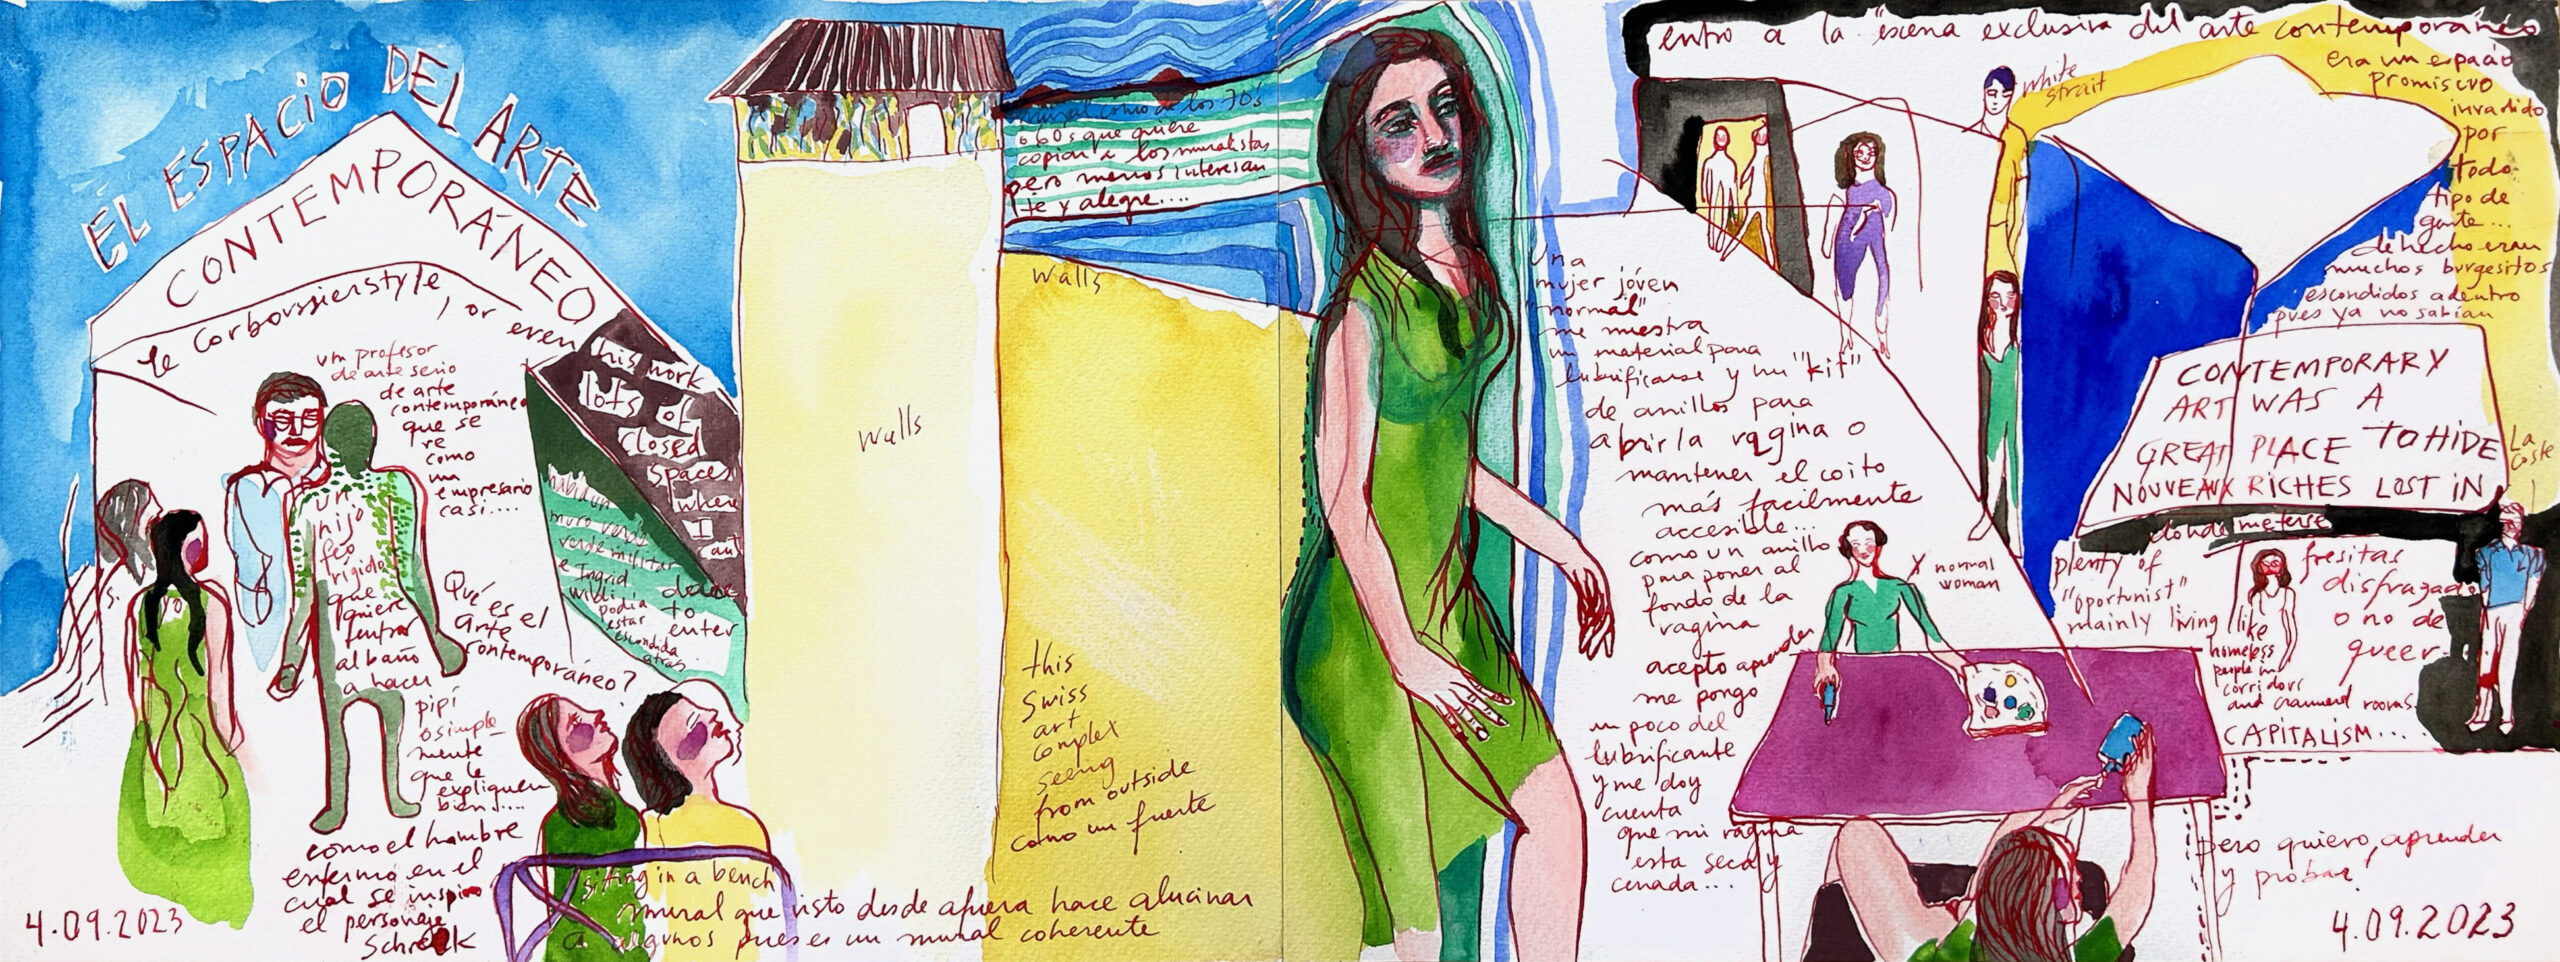 EL ESPACIO DEL ARTE
CONTEMPORÁNEO
le Corboussierstyle
, or even
his work
lots of
closed
spaces
where
I
cant
dare
to
enter
un profesor
de arte serio
de arte
contemporáneo
que se
ve
como
un
empresario
casi....
había un
muro verde
verde militar
e Ingrid
Wildi
podía
estar
escondida
atrás
s.
yo
un
hijo
feo
rígido
que
quiere
entrar
al baño
a hacer
pipí
o simple-
mente
que le
expliquen
bien.....
como el hombre
enfermo en el
cual se inspiro
el personaje
Schreck
Qué es el
arte
contemporáneo?
4.09.2023
walls
mural como de los 70's
o 60s que quiere
copiar a los muralistas
pero menos interesan-
te y alegre....
walls
this
swiss
art
complex
seeing
from outside
como un fuerte
sitting in a bench
mural que visto desde afuera hace alucinar
a algunos pues es un mural coherente
entro a la "escena exclusiva del arte contemporáneo
era un espacio
promiscuo
invadido
por
todo
tipo de
gente...
de hecho eran
muchos burgesitos
escondidos adentro
pues ya no sabían
white
strait
Una
mujer jóven
"normal"
me muestra
un material para
lubrificarse y un "kit"
de anillos para
abrir la vagina o
mantener el coito
más facilmente
accesible...
como un anillo
para poner al
fondo de la
vagina
acepto aprender
me pongo
un poco del
lubrificante
y me doy
cuenta
que mi vagina
esta seca y
cerrada...
normal
woman
CONTEMPORARY
ART WAS A
GREAT PLACE TO HIDE
NOUVEAUX RICHES LOST IN
La
Coste
donde meterse
plenty of
"oportunist"
mainly living like
homeless
people in
corridors
and crammed rooms.
CAPITALISM....
fresitas
disfrazad
o no de
queer
pero quiero aprender
y probar
4.09.2023